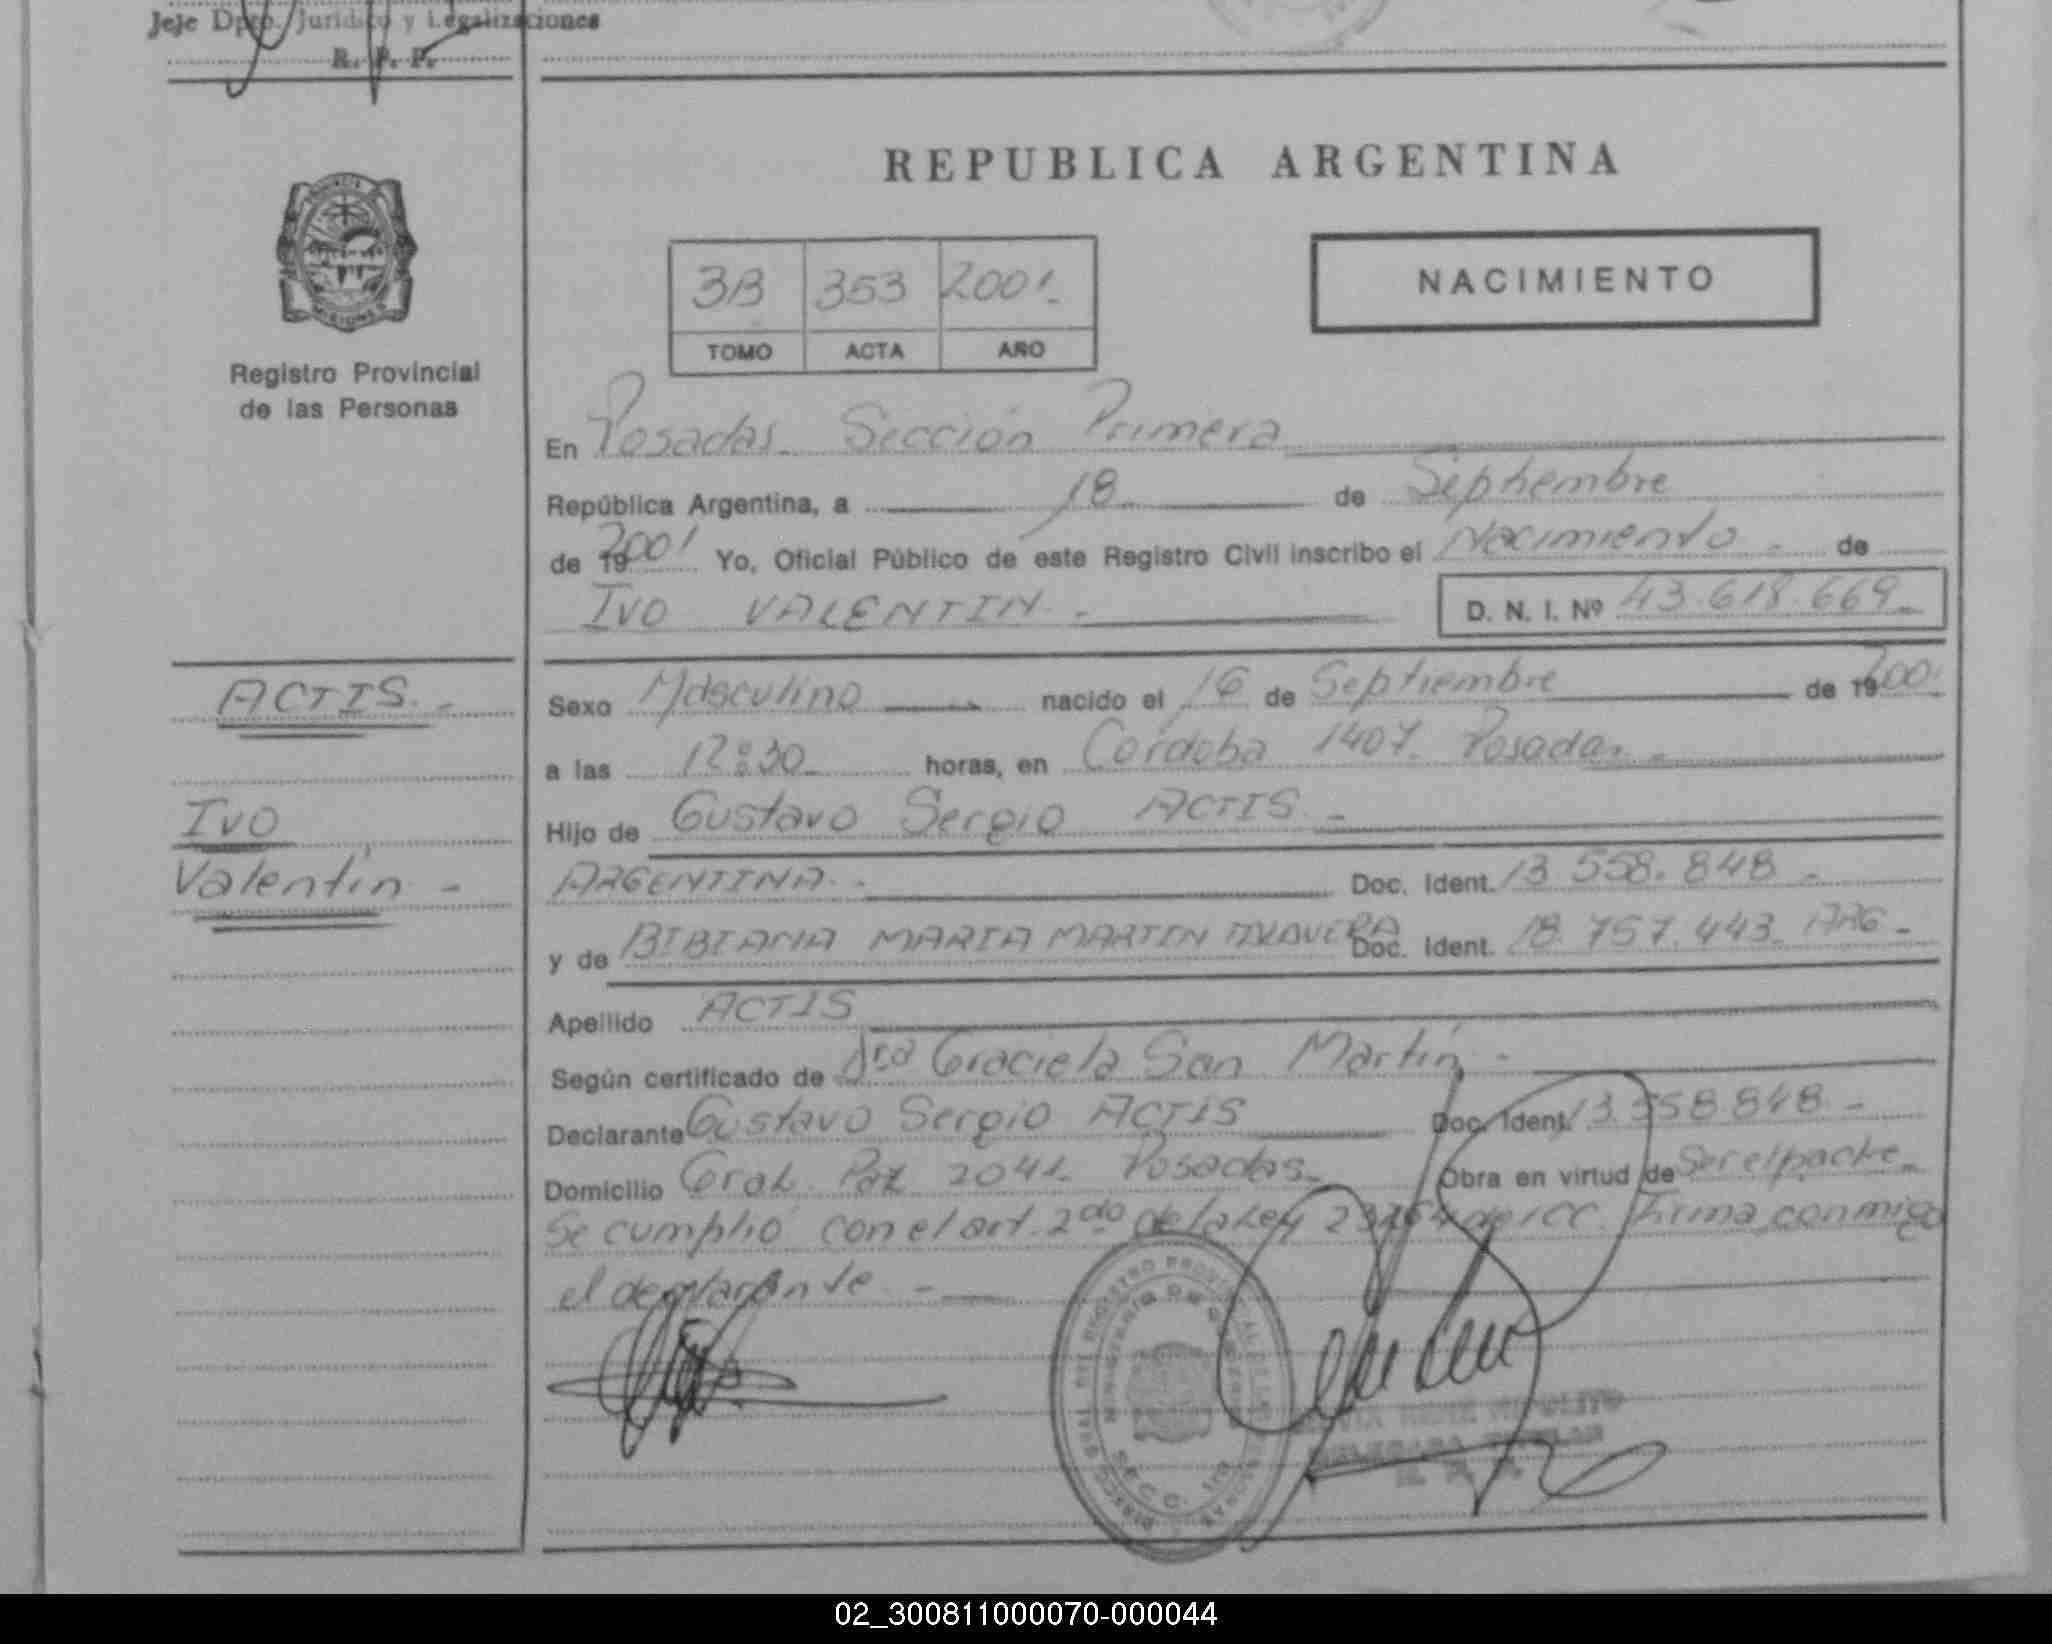 Jeje Dpto. Jurídico y Legalizaciones
R. P. P.
REPUBLICA ARGENTINA
3B 353 2001.-
TOMO ACTA AÑO
NACIMIENTO
MISIONES
Registro Provincial
de las Personas
En Posadas - Sección Primera
República Argentina, a 18 de Septiembre
de 19 2001 Yo, Oficial Público de este Registro Civil inscribo el Nacimiento - de
IVO VALENTIN.- D. N. I. Nº 43.618.669-
ACTIS.-
Ivo
Valentín -
Sexo Masculino nacido el 16 de Septiembre de 19 2001
a las 12:30 horas, en Córdoba 1407. Posadas.-
Hijo de Gustavo Sergio ACTIS.-
ARGENTINA.- Doc. Ident. 13.558.848 -
y de BIBIANA MARIA MARTIN TALAVERA Doc. Ident. 18.757.443. ARG -
Apellido ACTIS
Según certificado de Dra Graciela San Martín -
Declarante Gustavo Sergio ACTIS Doc. Ident. 13.558.848 -
Domicilio Gral. Paz 2041 - Posadas - Obra en virtud de Ser el padre -
Se cumplió con el art. 2do de la Ley 23264 de l CC. Firma conmigo
el declarante. -
HIPOLITO
02_300811000070-000044